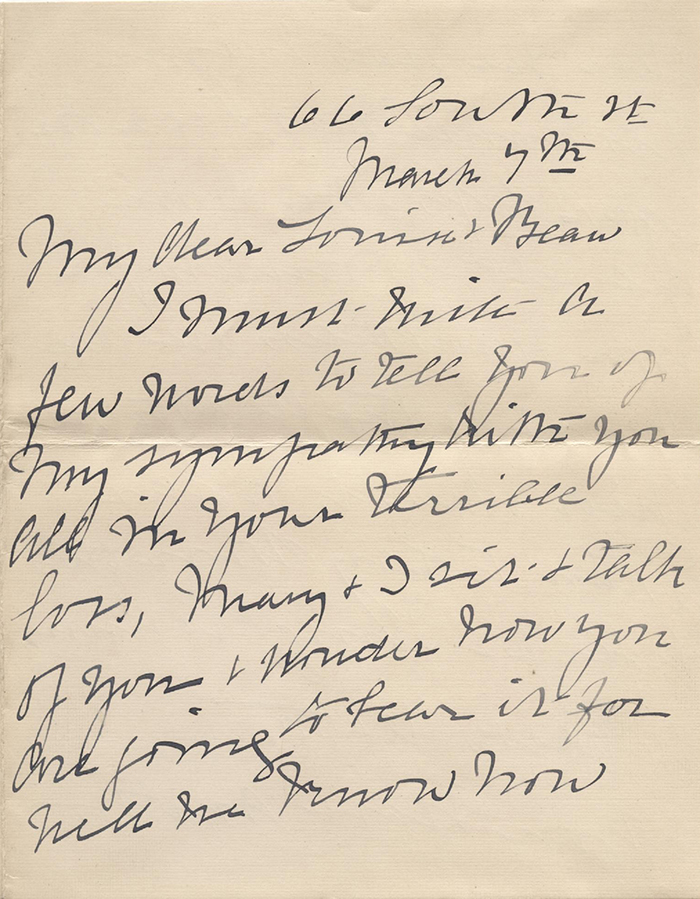 66 South St
March 7th
My dear Louise & Beau
I must write a
few words to tell you of
my sympathy with you
all in your terrible
loss, Mary & I sit & talk
of you & wonder how you
are going to bear it for
well we know how